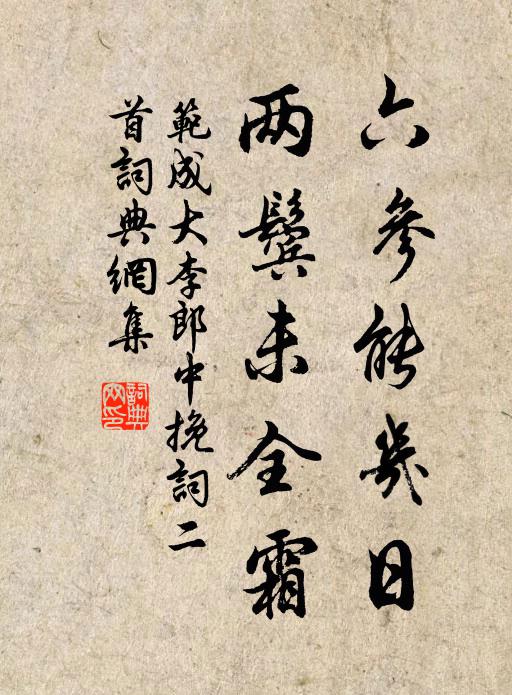 六參能幾日
两鬢未全霜
範成大李郎中挽詞二
首詞典網集
詞典
网印